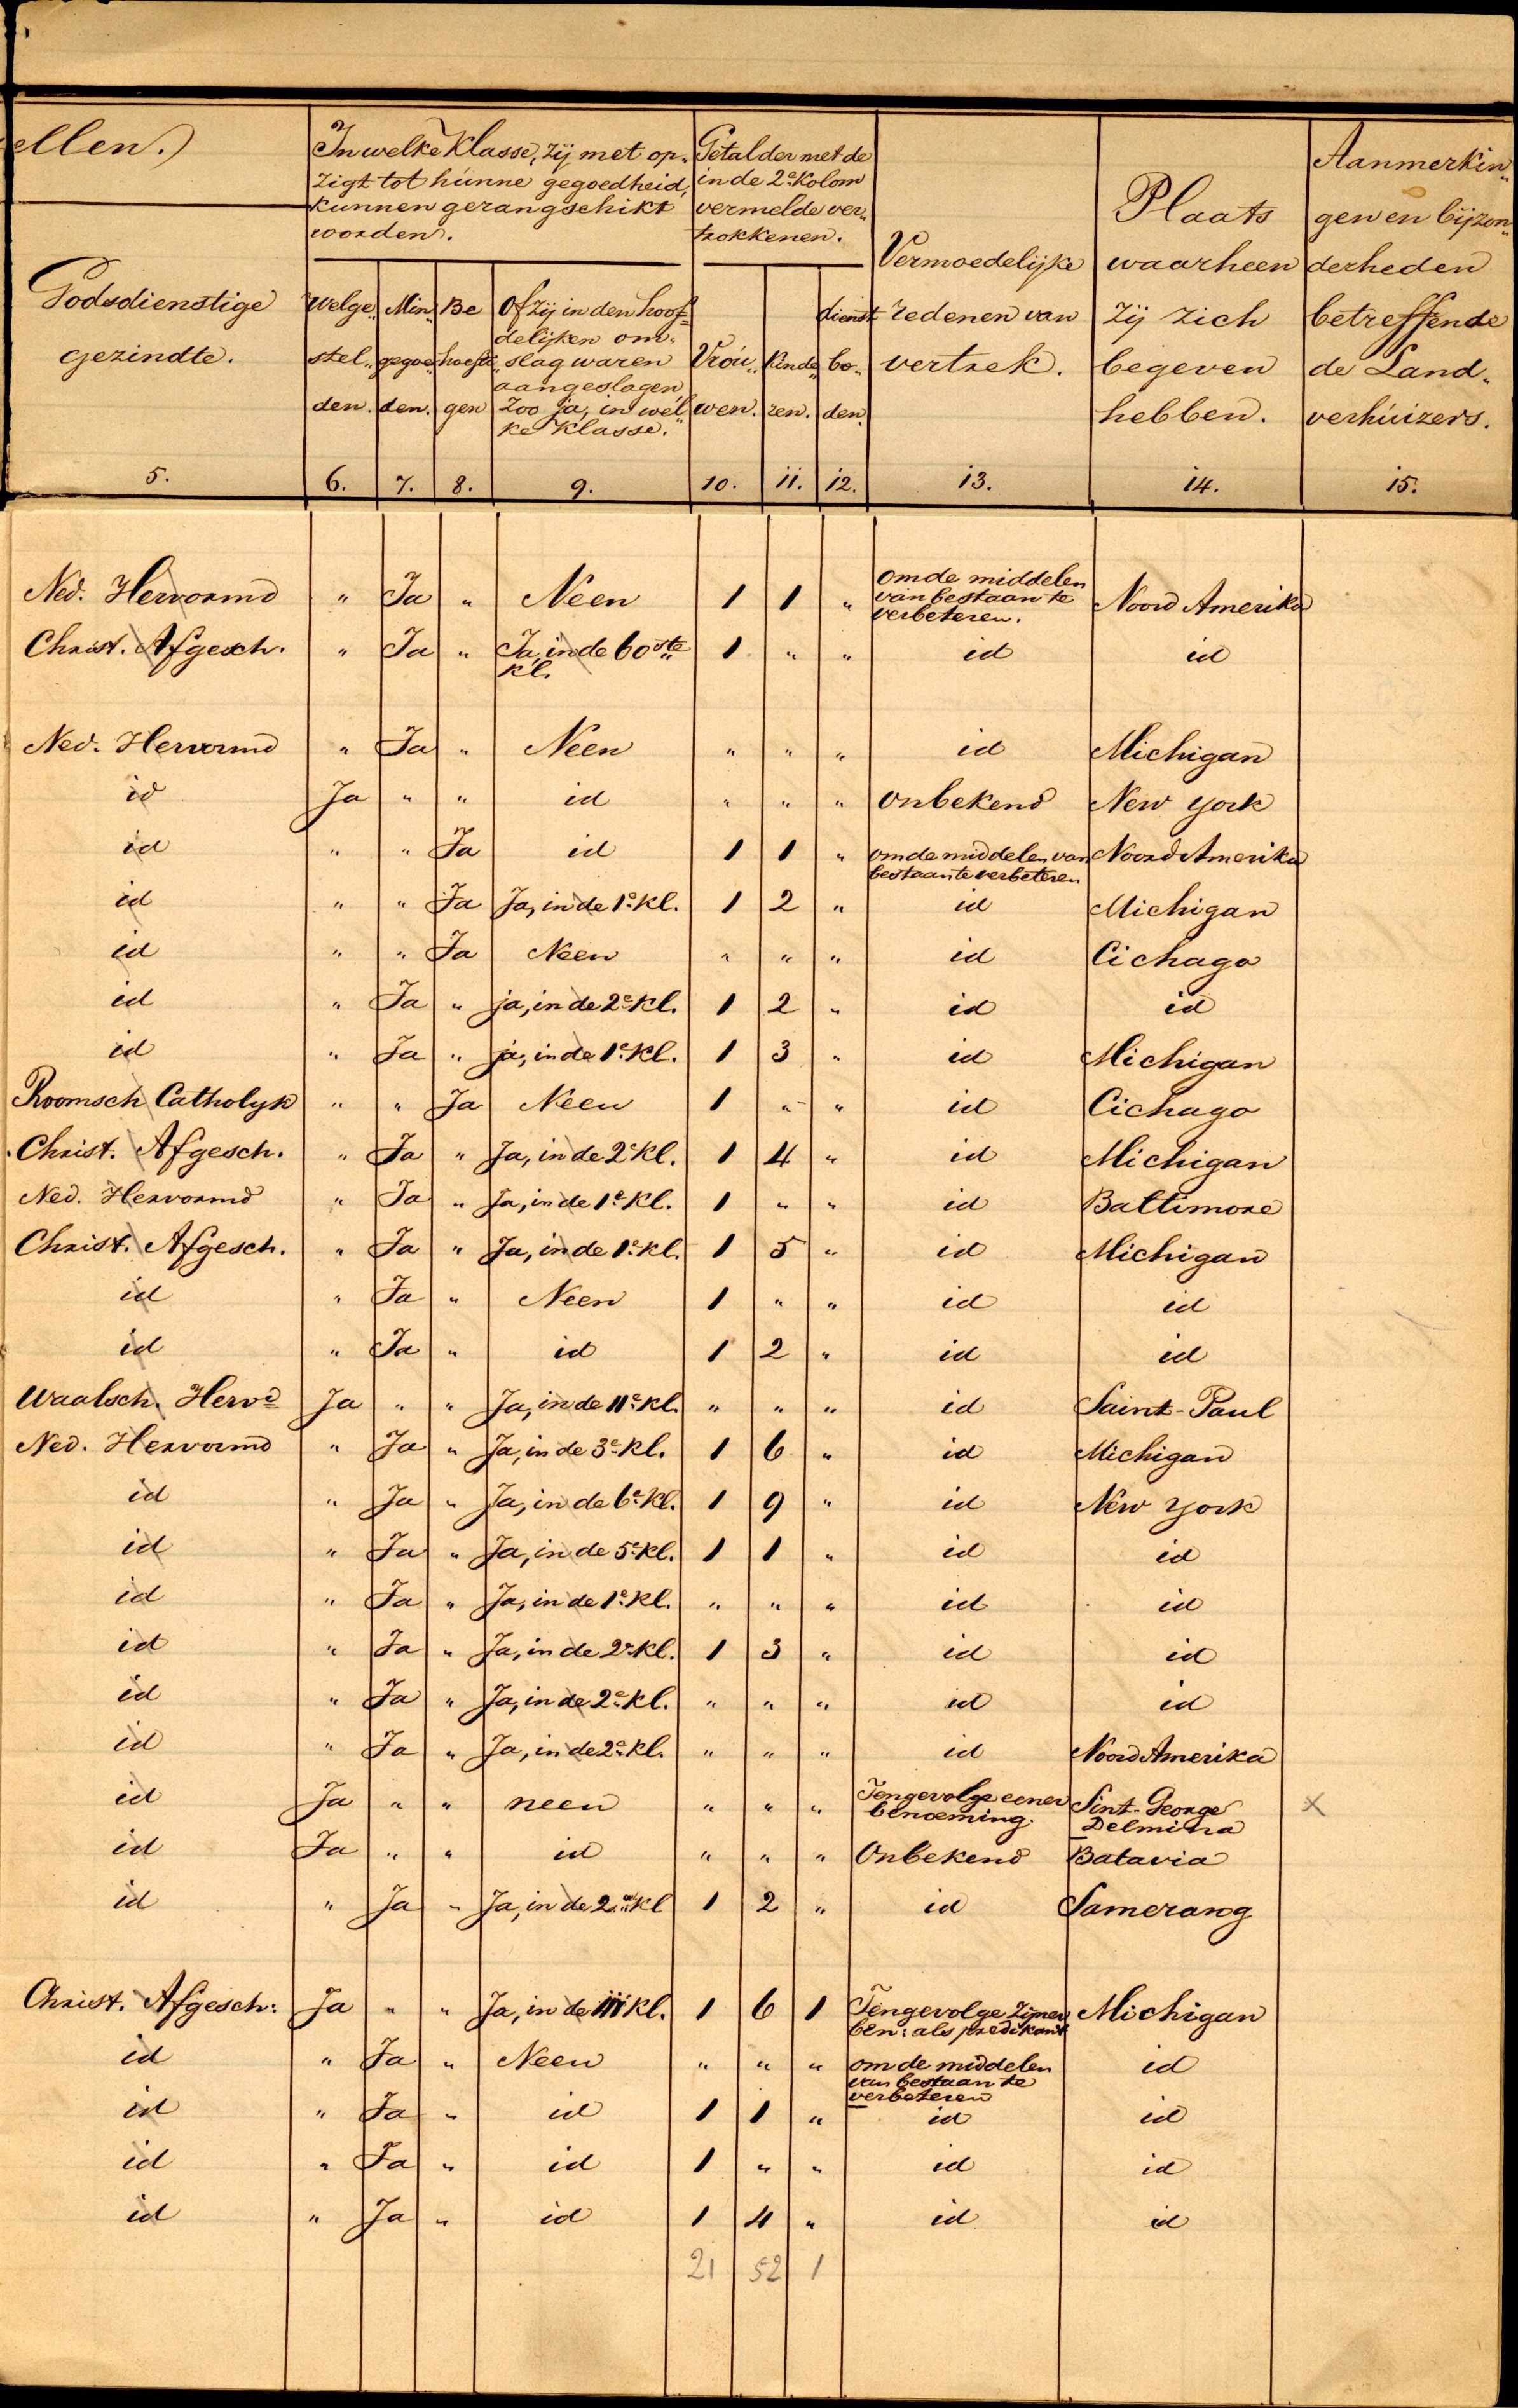 ellen.)
Godsdienstige
gezindte.
5.
In welke Klasse, zij met op„
zigt tot hunne gegoedheid,
kunnen gerangschikt
worden.
Welge„ stel„ den. 6.
Min„ gegoe„ den. 7.
Be hoefti„ gen 8.
Of zij in den hoof=
delijken om„
slag waren
aangeslagen
Zoo ja, in wel„
ke Klasse.
9.
Getal der met de
in de 2e Kolom
vermelde ver„
trokkenen.
Vrou„ wen. 10.
Kinde„ ren. 11.
dienst bo„ den. 12.
Vermoedelijke
redenen van
vertrek.
13.
Plaats
waarheen
zij zich
begeven
hebben.
14.
Aanmerkin„
gen en bijzon„
derheden
betreffende
de Land„
verhuizers.
15.
Ned. Hervormd " Ja " Neen 1 1 " om de middelen van bestaan te verbeteren. Noord Amerika
Christ. Afgesch. " Ja " Ja, in de 60ste kl. 1 " " id id
Ned. Hervormd " Ja " Neen " " " id Michigan
id Ja " " id " " " onbekend New York
id " " Ja id 1 1 " om de middelen van bestaan te verbeteren Noord Amerika
id " " Ja Ja, in de 1e Kl. 1 2 " id Michigan
id " " Ja Neen " " " id Cichago
id " Ja " ja, in de 2e Kl. 1 2 " id id
id " Ja " ja, in de 1e Kl. 1 3 " id Michigan
Roomsch Catholyk " " Ja Neen 1 " " id Cichago
Christ. Afgesch. " Ja " Ja, in de 2e Kl. 1 4 " id Michigan
Ned. Hervormd " Ja " Ja, in de 1e Kl. 1 " " id Baltimore
Christ. Afgesch. " Ja " Ja, in de 1e Kl. 1 5 " id Michigan
id " Ja " Neen 1 " " id id
id " Ja " id 1 2 " id id
Waalsch. Hervd Ja " " Ja, in de 11e Kl. " " " id Saint-Paul
Ned. Hervormd " Ja " Ja, in de 3e Kl. 1 6 " id Michigan
id " Ja " Ja, in de 6e Kl. 1 9 " id New York
id " Ja " Ja, in de 5e Kl. 1 1 " id id
id " Ja " Ja, in de 1e Kl. " " " id id
id " Ja " Ja, in de 2e Kl. 1 3 " id id
id " Ja " Ja, in de 2e Kl. " " " id id
id " Ja " Ja, in de 2e Kl. " " " id Noord Amerika
id Ja " " neen " " " Tengevolge eener benoeming. Sint-George Delmina x
id Ja " " id " " " Onbekend Batavia
id " Ja " Ja, in de 2e Kl 1 2 " id Samerang
Christ. Afgesch: Ja " " Ja, in de iii Kl. 1 6 1 Tengevolge zijner ben: als predikant Michigan
id " Ja " Neen " " " om de middelen van bestaan te verbeteren id
id " Ja " id 1 1 " id id
id " Ja " id 1 " " id id
id " Ja " id 1 4 " id id
21 52 1